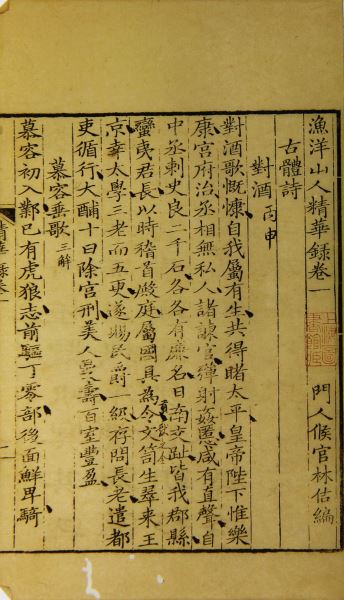 漁洋山人精華錄卷一
門人候官林佶編
古體詩
對酒 丙申
對酒歌慨慷自我屬有生共得睹太平皇帝陛下惟樂
康官府治丞相無私人諸諫官彈射姦慝咸有直聲自
中丞刺史良二千石各各有廉名日南交趾皆我郡縣
蠻夷君長以時稽首殿庭屬國具為令文笥生翠來王
京幸太學三老而五更遂賜民爵一級存問長老遣都
吏循行大酺十日除宮刑美人雲壽百室豐盈
慕容垂歌 三解
慕容初入鄴已有虎狼志前驅丁零部後面鮮卑騎
精華錄卷一